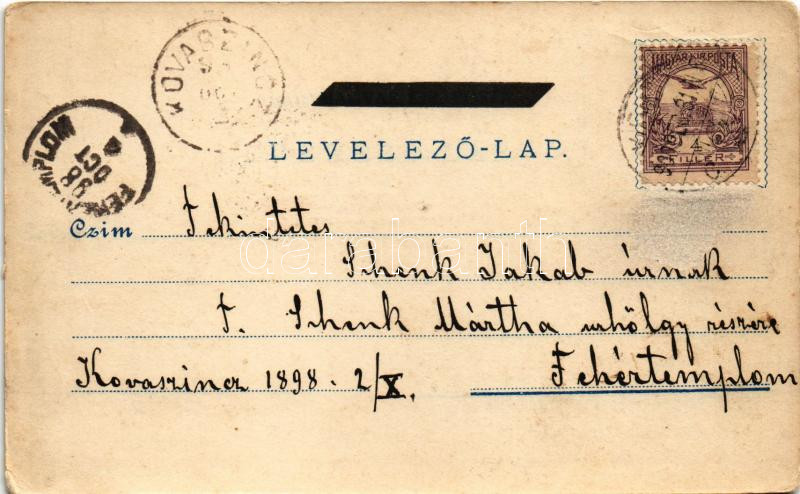 KOVASZINCZ
98
OCT
MAGYAR KIR. POSTA
4
FILLÉR
98
OCT
4
LEVELEZŐ-LAP.
Czim Tekintetes
Schenk Jakab úrnak
T. Schenk Mártha urhölgy részére
Kovaszincz 1898. 2/X. Fehértemplom
darabanth